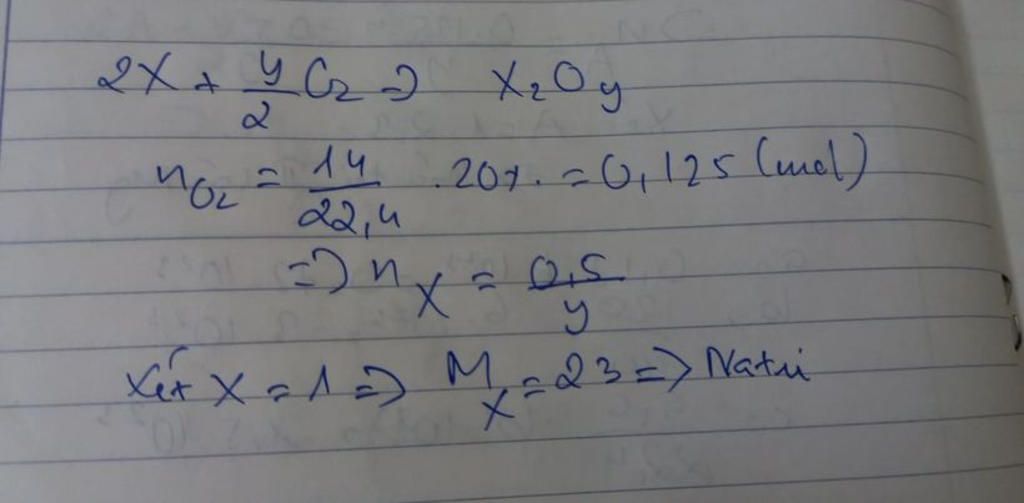 2X + y/2 O2 => X2Oy
nO2 = 14/22,4 . 20% = 0,125 (mol)
=> nX = 0,5/y
Xét X = 1 => MX = 23 => Natri